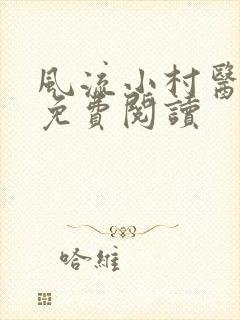 風流小村醫
免費閱讀
哈維